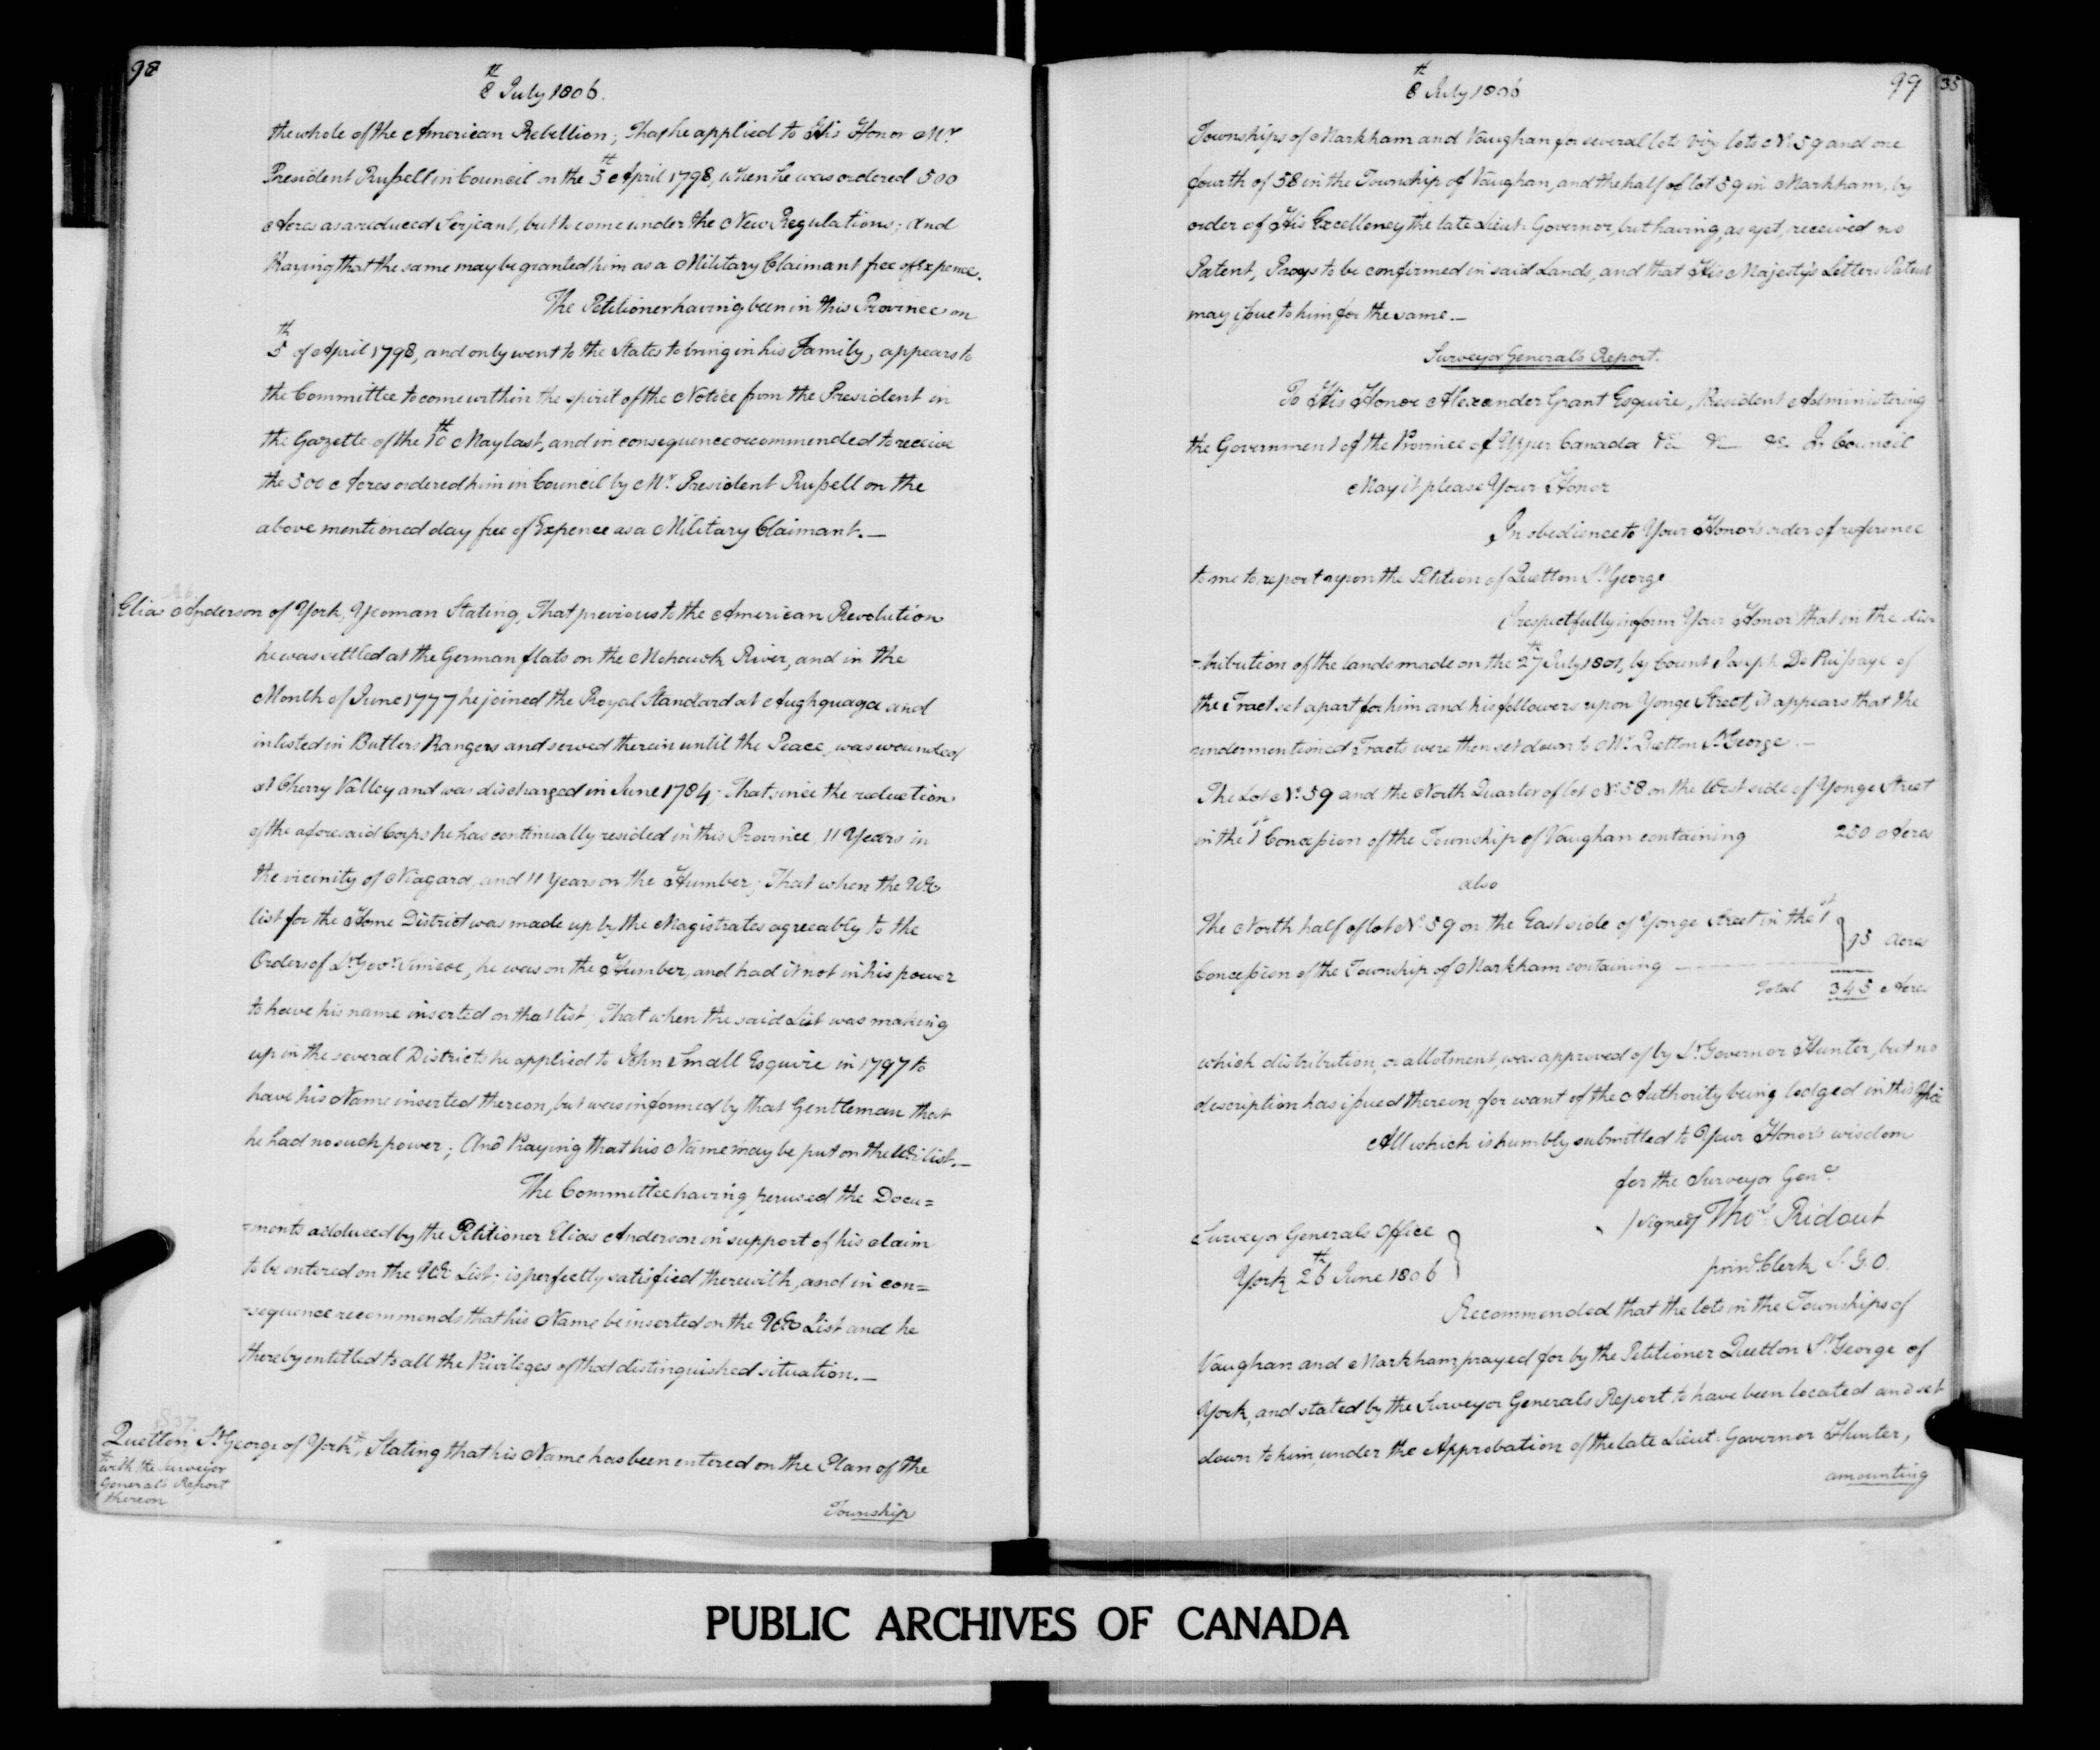 98
8th July 1806.
the whole of the American Rebellion; That he applied to His Honor Mr
President Russell in Council on the 5th April 1798, when he was ordered 500
Acres as a reduced Serjeant, but to come under the New Regulations; And
Praying that the same may be granted him as a Military Claimant free of Expence.
The Petitioner having been in this Province on
5th of April 1798, and only went to the States to bring in his Family, appears to
the Committee to come within the spirit of the Notice from the President in
the Gazette of the 10th May last, and in consequence recommended to receive
the 500 Acres ordered him in Council by Mr. President Russell on the
above mentioned day free of Expence as a Military Claimant.—
Elias Anderson of York, Yeoman Stating, That previous to the American Revolution
he was settled at the German flats on the Mohawk River, and in the
Month of June 1777 he joined the Royal Standard at Aughquaga and
inlisted in Butlers Rangers and served therein until the Peace, was wounded
at Cherry Valley and was discharged in June 1784; That since the reduction
of the aforesaid Corps he has continually resided in this Province, 11 Years in
the vicinity of Niagara, and 11 years on the Humber; That when the UE
list for the Home District was made up by the Magistrates agreeably to the
Orders of Lt Govr Simcoe, he was on the Humber, and had it not in his power
to have his name inserted on that list; That when the said List was making
up in the several Districts he applied to John Small Esquire in 1797 to
have his Name inserted thereon, but was informed by that Gentleman that
he had no such power; And Praying that his Name may be put on the UE list.—
The Committee having perused the Docu=
=ments adduced by the Petitioner Elias Anderson in support of his claim
to be entered on the UE List; is perfectly satisfied therewith, and in con=
=sequence recommends that his Name be inserted on the UE List and he
thereby entitled to all the Privileges of that distinguished situation.—
S 37
Quetton St George of York, Stating that his Name has been entered on the Plan of the
with the Surveyor
General's Report
thereon
Township
8th July 1806
99
35
Townships of Markham and Vaughan for several lots viz lots No 59 and one
fourth of 58 in the Township of Vaughan, and the half of lot 59 in Markham, by
order of His Excellency the late Lieut. Governor, but having, as yet, received no
Patent, Prays to be confirmed in said Lands, and that His Majesty's Letters Patent
may issue to him for the same.—
Surveyor General's Report.
To His Honor Alexander Grant Esquire, President Administering
the Government of the Province of Upper Canada &c &c &c In Council
May it please Your Honor
In obedience to Your Honor's order of reference
to me to report upon the Petition of Quetton St George
I respectfully inform Your Honor that in the dis
-tribution of the lands made on the 27th July 1801, by Count Joseph De Puisaye of
the Tract set apart for him and his followers upon Yonge Street, it appears that the
undermentioned Tracts were then set down to Mr Quetton St George.—
The Lot No 59 and the North Quarter of lot No 58 on the West side of Yonge Street
in the 1st Concession of the Township of Vaughan containing 250 Acres
also
The North half of lot No 59 on the East side of Yonge Street in the 1st
Concession of the Township of Markham containing — 95 Acres
Total 345 Acres
which distribution, or allotment, was approved of by Lt Governor Hunter, but no
description has issued thereon for want of the Authority being lodged in this Office
All which is humbly submitted to Your Honor's wisdom
for the Surveyor Genl
(signed) Thos Ridout
Surveyor Generals Office
York 26th June 1806
prinl Clerk S. G. O.
Recommended that the lots in the Townships of
Vaughan and Markham prayed for by the Petitioner Quetton St George of
York, and stated by the Surveyor Generals Report to have been located and set
down to him, under the Approbation of the late Lieut. Governor Hunter,
amounting
PUBLIC ARCHIVES OF CANADA